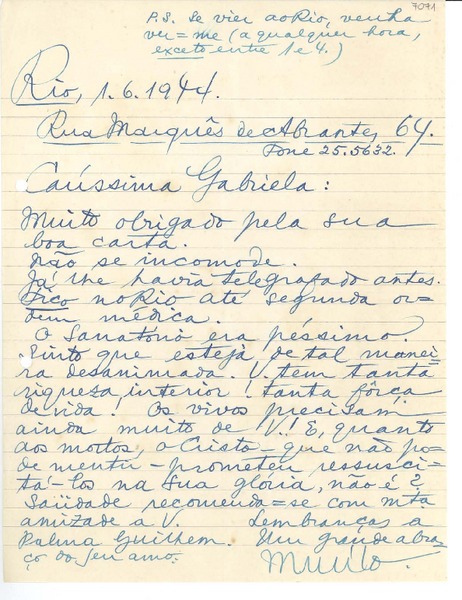 7071
P.S. Se vier ao Rio, venha
ver=me (a qualquer hora,
exceto entre 1 e 4.)
Rio, 1.6.1944.
Rua Marquês de Abrantes, 64.
Fone 25.5632.
Caríssima Gabriela:
Muito obrigado pela sua
boa carta.
Não se incomode.
Já lhe havia telegrafado antes.
Fico no Rio até segunda or=
dem médica.
O Sanatório era péssimo.
Sinto que esteja de tal manei=
ra desanimada. V. tem tanta
riqueza interior! tanta fôrça
de vida! Os vivos precisam
ainda muito de V.! E, quanto
aos mortos, o Cristo - que não po=
de mentir - prometeu ressusci=
tá-los na sua glória, não é?
Saüdade recomenda=se com mta
amizade a V. Lembranças a
Palma Guilhem. Um grande abra=
ço do seu amo.
Murilo.